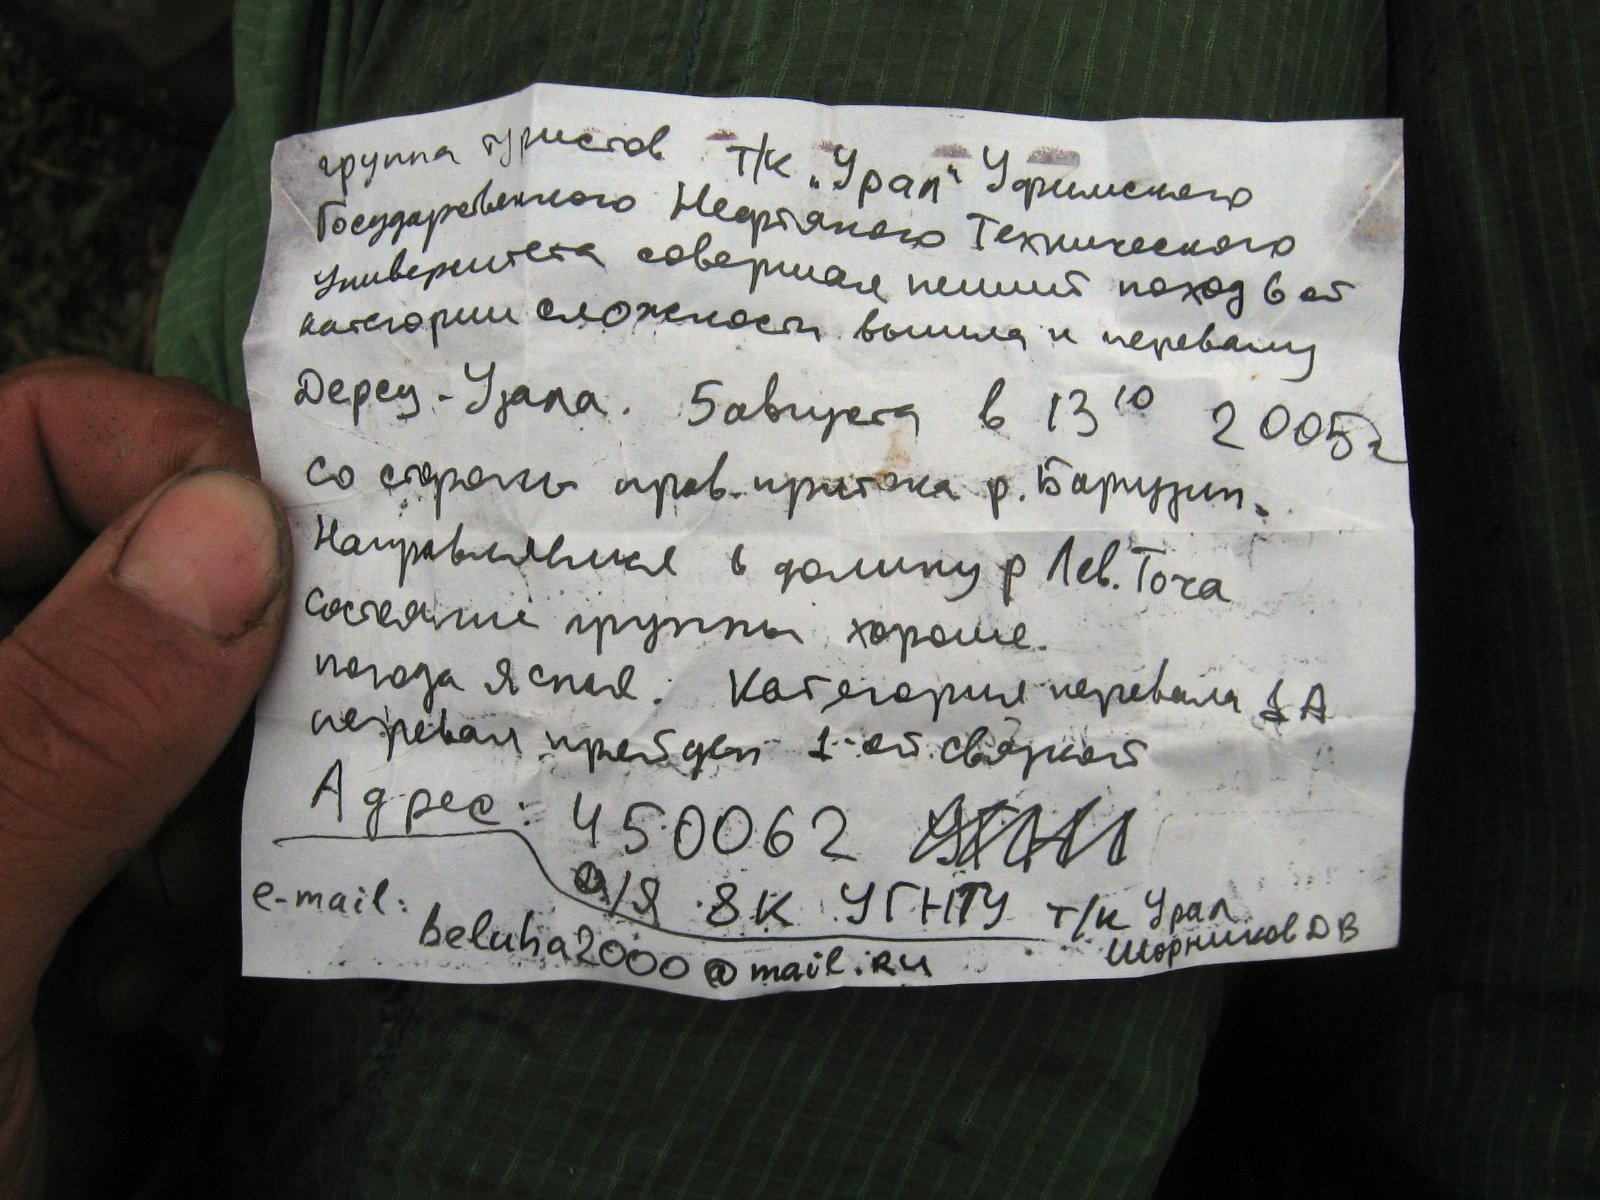 группа туристов т/к „Урал" Уфимского
Государственного Нефтяного Технического
Университета совершая пеший поход 6 ой
категории сложности вышла к перевалу
Дерсу-Узала. 5 августа в 13 10 2005г
со стороны прав. притока р. Баргузин.
Направляемся в долину р Лев.Точа
состояние группы хорошее.
погода ясная. Категория перевала 1А
перевал пройден 1-ой связкой
Адрес: 450062
а/я 8К УГНТУ т/к Урал
Шорников ДВ
e-mail: beluha2000@mail.ru